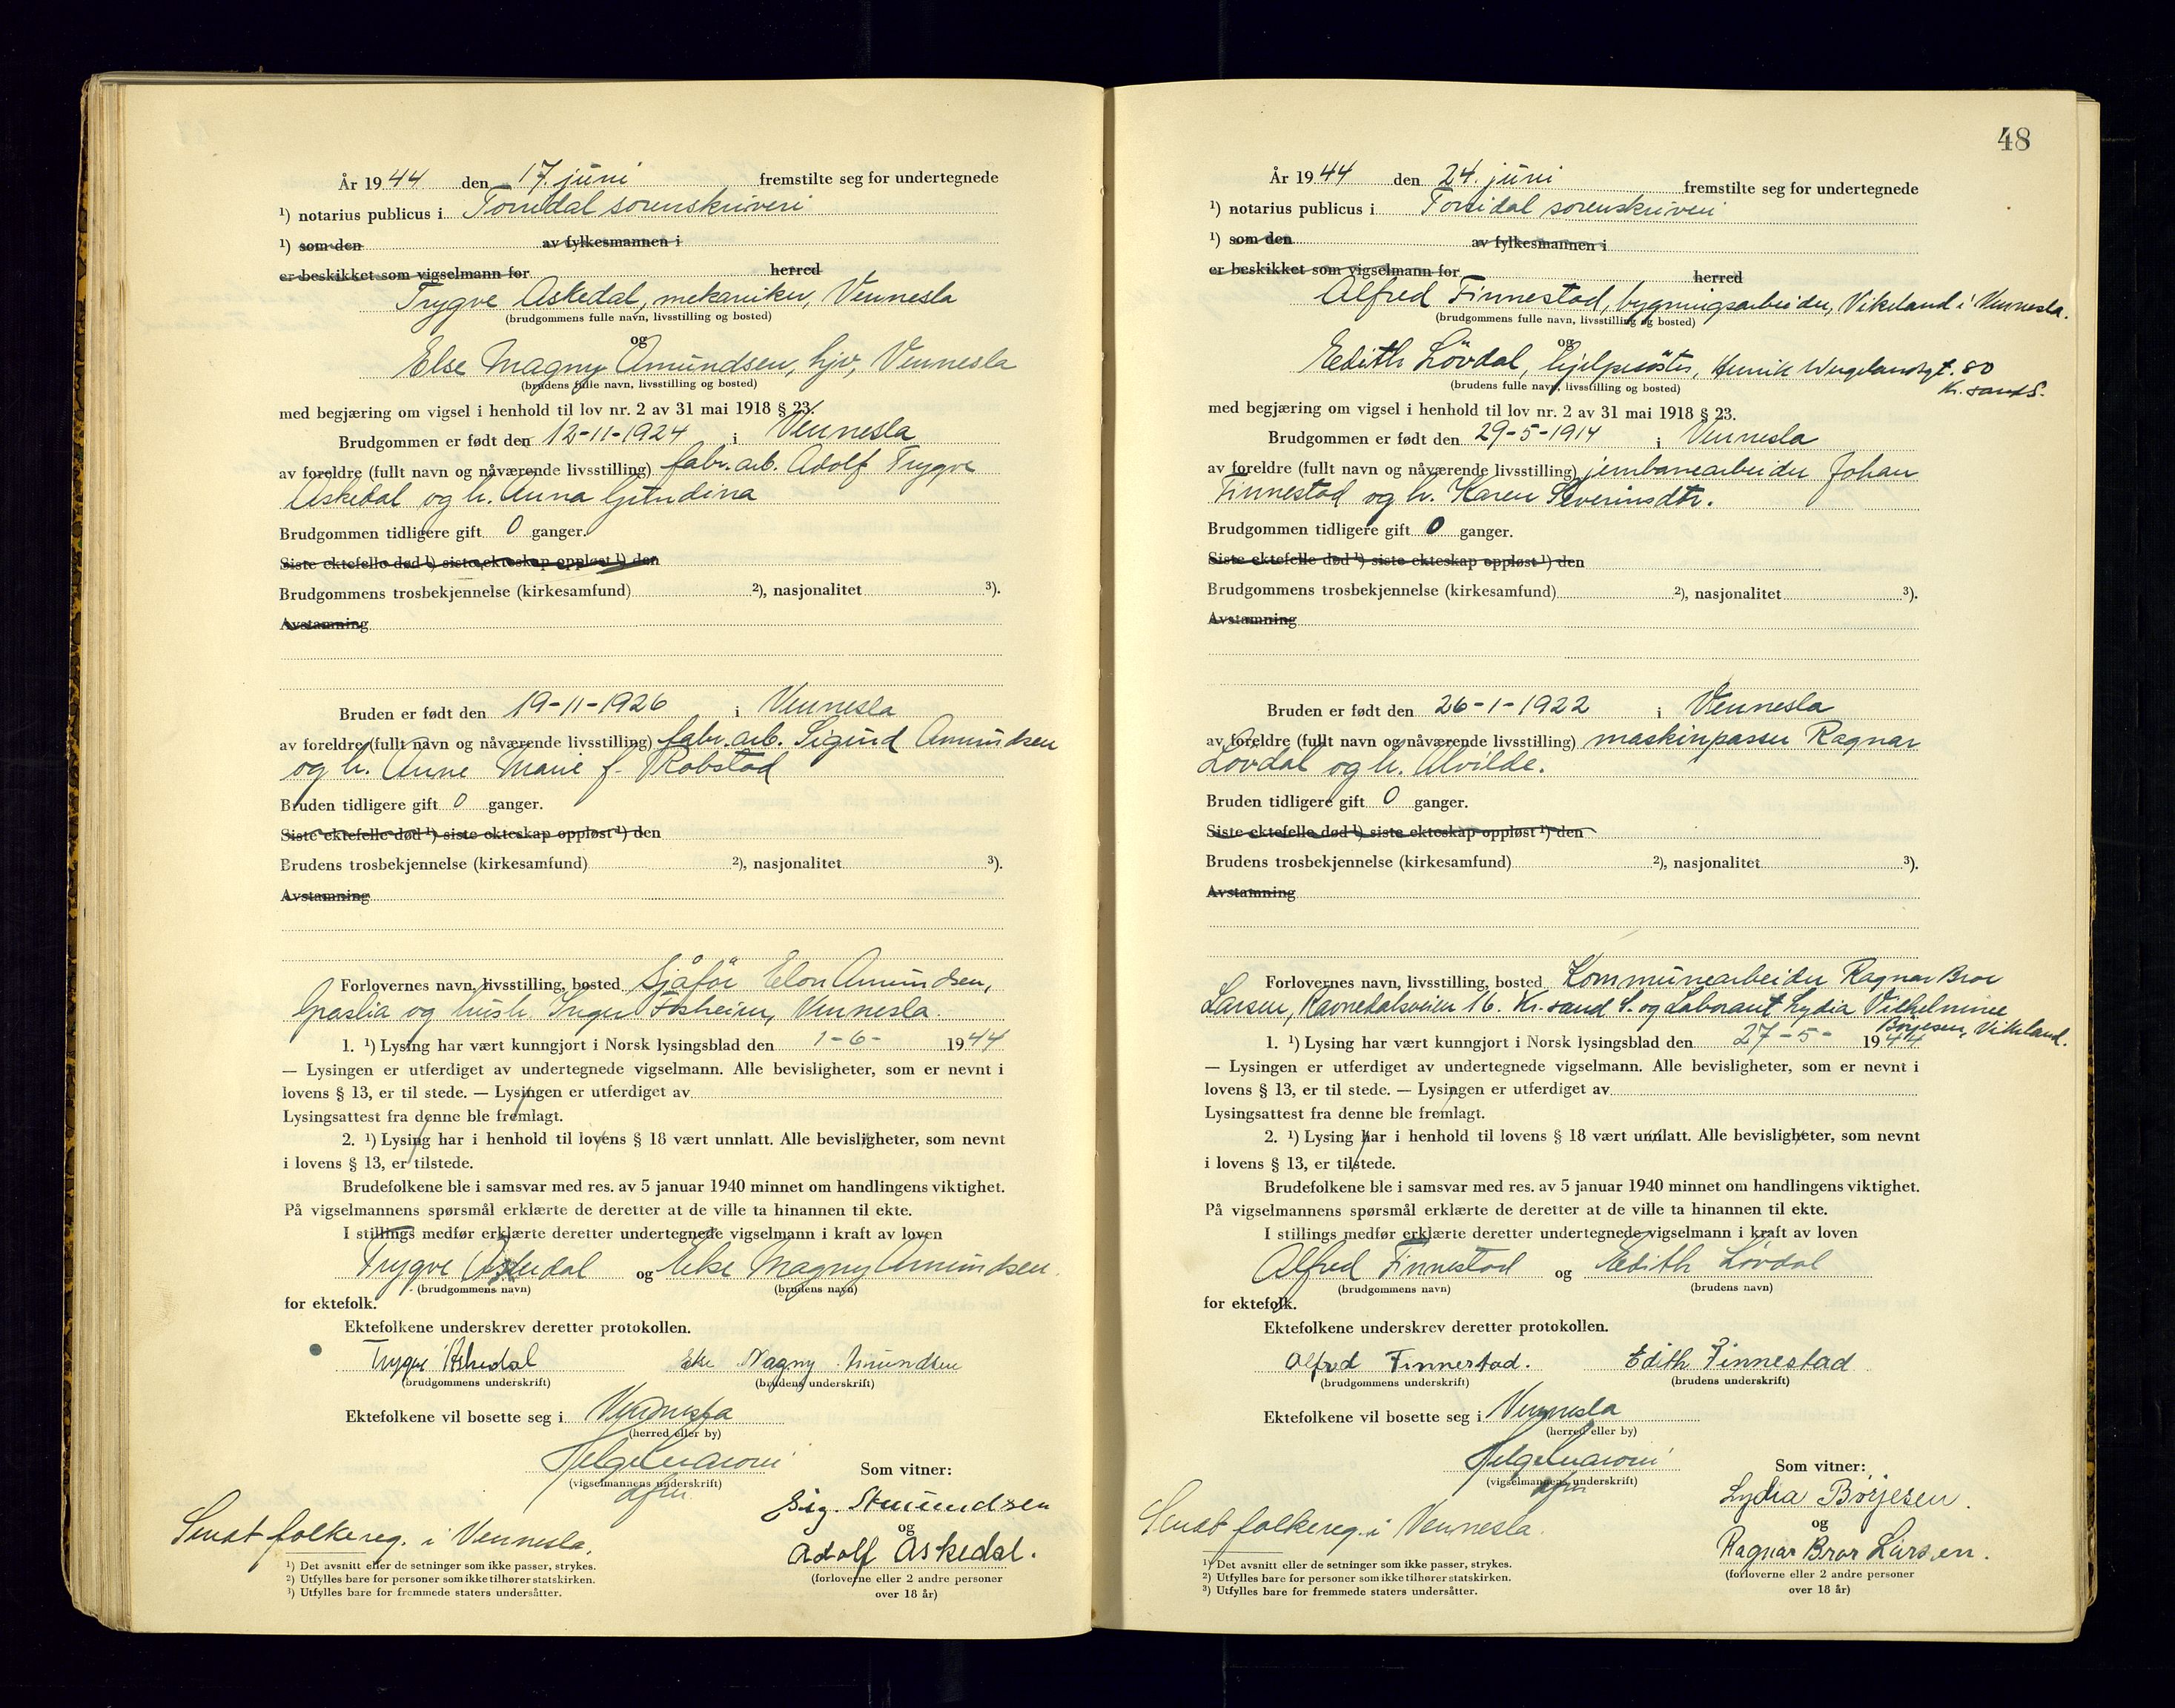 År 1944 den 17. juni fremstilte seg for undertegnede
¹) notarius publicus i Torridal sorenskriveri
¹) som den av fylkesmannen i
er beskikket som vigselmann for herred
Trygve Askedal, mekaniker, Vennesla
(brudgommens fulle navn, livsstilling og bosted)
og
Else Magny Amundsen, hjv, Vennesla
(brudens fulle navn, livsstilling og bosted)
med begjæring om vigsel i henhold til lov nr. 2 av 31 mai 1918 § 23.
Brudgommen er født den 12-11-1924 i Vennesla
av foreldre (fullt navn og nåværende livsstilling) fabr.arb. Adolf Trygve
Askedal og h. Anna Gjendina
Brudgommen tidligere gift 0 ganger.
Siste ektefelle død ¹) siste ekteskap oppløst ¹) den
Brudgommens trosbekjennelse (kirkesamfund) ²), nasjonalitet ³).
Avstamning
Bruden er født den 19-11-1926 i Vennesla
av foreldre (fullt navn og nåværende livsstilling) fabr.arb. Sigurd Amundsen
og h. Anne Marie f. Robstad
Bruden tidligere gift 0 ganger.
Siste ektefelle død ¹) siste ekteskap oppløst ¹) den
Brudens trosbekjennelse (kirkesamfund) ²), nasjonalitet ³).
Avstamning
Forlovernes navn, livsstilling, bosted Sjåfør Elon Amundsen,
Graslia og hush. Inger Fosheim, Vennesla.
1. ¹) Lysing har vært kunngjort i Norsk lysingsblad den 1-6- 1944
— Lysingen er utferdiget av undertegnede vigselmann. Alle bevisligheter, som er nevnt i
lovens § 13, er til stede. — Lysingen er utferdiget av
Lysingsattest fra denne ble fremlagt.
2. ¹) Lysing har i henhold til lovens § 18 vært unnlatt. Alle bevisligheter, som nevnt
i lovens § 13, er tilstede.
Brudefolkene ble i samsvar med res. av 5 januar 1940 minnet om handlingens viktighet.
På vigselmannens spørsmål erklærte de deretter at de ville ta hinannen til ekte.
I stillings medfør erklærte deretter undertegnede vigselmann i kraft av loven
Trygve Askedal og Else Magny Amundsen.
(brudgommens navn) (brudens navn)
for ektefolk.
Ektefolkene underskrev deretter protokollen.
Trygve Askedal Else Magny Amundsen
(brudgommens underskrift) (brudens underskrift)
Ektefolkene vil bosette seg i Vennesla
(herred eller by)
(vigselmannens underskrift)
Som vitner:
Sig. Amundsen
og
Adolf Askedal.
(forloverne eller 2 andre personer
over 18 år)
Sendt folkereg. i Vennesla.
¹) Det avsnitt eller de setninger som ikke passer, strykes.
²) Utfylles bare for personer som ikke tilhører statskirken.
³) Utfylles bare for fremmede staters undersåtter.
48
År 1944 den 24. juni fremstilte seg for undertegnede
¹) notarius publicus i Torridal sorenskriveri
¹) som den av fylkesmannen i
er beskikket som vigselmann for herred
Alfred Finnestad, bygningsarbeider, Vikeland i Vennesla.
(brudgommens fulle navn, livsstilling og bosted)
og
Edith Lövdal, hjelpesøster, Henrik Wergelandsgt. 80
Kr.sand S.
(brudens fulle navn, livsstilling og bosted)
med begjæring om vigsel i henhold til lov nr. 2 av 31 mai 1918 § 23.
Brudgommen er født den 29-5-1914 i Vennesla
av foreldre (fullt navn og nåværende livsstilling) jernbanearbeider Johan
Finnestad og h. Karen Severinsdtr.
Brudgommen tidligere gift 0 ganger.
Siste ektefelle død ¹) siste ekteskap oppløst ¹) den
Brudgommens trosbekjennelse (kirkesamfund) ²), nasjonalitet ³).
Avstamning
Bruden er født den 26-1-1922 i Vennesla
av foreldre (fullt navn og nåværende livsstilling) maskinpasser Ragnar
Lövdal og h. Alvilde.
Bruden tidligere gift 0 ganger.
Siste ektefelle død ¹) siste ekteskap oppløst ¹) den
Brudens trosbekjennelse (kirkesamfund) ²), nasjonalitet ³).
Avstamning
Forlovernes navn, livsstilling, bosted Kommunearbeider Ragnar Bror
Larsen, Ravnedalsveien 16. Kr.sand S. og Laborant Lydia Vilhelmine
Börjesen, Vikeland.
1. ¹) Lysing har vært kunngjort i Norsk lysingsblad den 27-5- 1944
— Lysingen er utferdiget av undertegnede vigselmann. Alle bevisligheter, som er nevnt i
lovens § 13, er til stede. — Lysingen er utferdiget av
Lysingsattest fra denne ble fremlagt.
2. ¹) Lysing har i henhold til lovens § 18 vært unnlatt. Alle bevisligheter, som nevnt
i lovens § 13, er tilstede.
Brudefolkene ble i samsvar med res. av 5 januar 1940 minnet om handlingens viktighet.
På vigselmannens spørsmål erklærte de deretter at de ville ta hinannen til ekte.
I stillings medfør erklærte deretter undertegnede vigselmann i kraft av loven
Alfred Finnestad og Edith Lövdal
(brudgommens navn) (brudens navn)
for ektefolk.
Ektefolkene underskrev deretter protokollen.
Alfred Finnestad. Edith Finnestad
(brudgommens underskrift) (brudens underskrift)
Ektefolkene vil bosette seg i Vennesla
(herred eller by)
(vigselmannens underskrift)
Som vitner:
Lydia Börjesen.
og
Ragnar Bror Larsen.
(forloverne eller 2 andre personer
over 18 år)
Sendt folkereg. i Vennesla.
¹) Det avsnitt eller de setninger som ikke passer, strykes.
²) Utfylles bare for personer som ikke tilhører statskirken.
³) Utfylles bare for fremmede staters undersåtter.